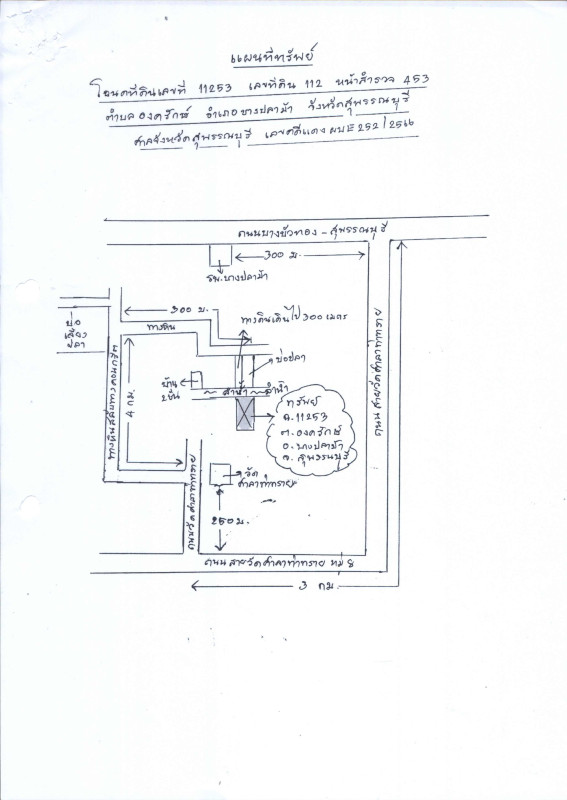 แผนที่ทรัพย์
โฉนดที่ดินเลขที่ 11253 เลขที่ดิน 112 หน้าสำรวจ 453
ตำบล องครักษ์ อำเภอ บางปลาม้า จังหวัดสุพรรณบุรี
ศาลจังหวัดสุพรรณบุรี เลขคดีแดง ผบE 252/2566
ถนนบางบัวทอง - สุพรรณบุรี
300 ม.
รพ.บางปลาม้า
300 ม.
ทางดินเดินไป 300 เมตร
บ่อ
เลี้ยง
ปลา
ทางดิน
บ่อปลา
บ้าน
2ชั้น
ลำน้ำ
ลำน้ำ
ทรัพย์
ฉ.11253
ต.องครักษ์
อ.บางปลาม้า
จ.สุพรรณบุรี
4 กม.
ถนนสายวัดศาลาท่าทราย
วัด
ศาลาท่าทราย
250 ม.
ถนนสายวัดศาลาท่าทราย หมู่ 8
3 กม.